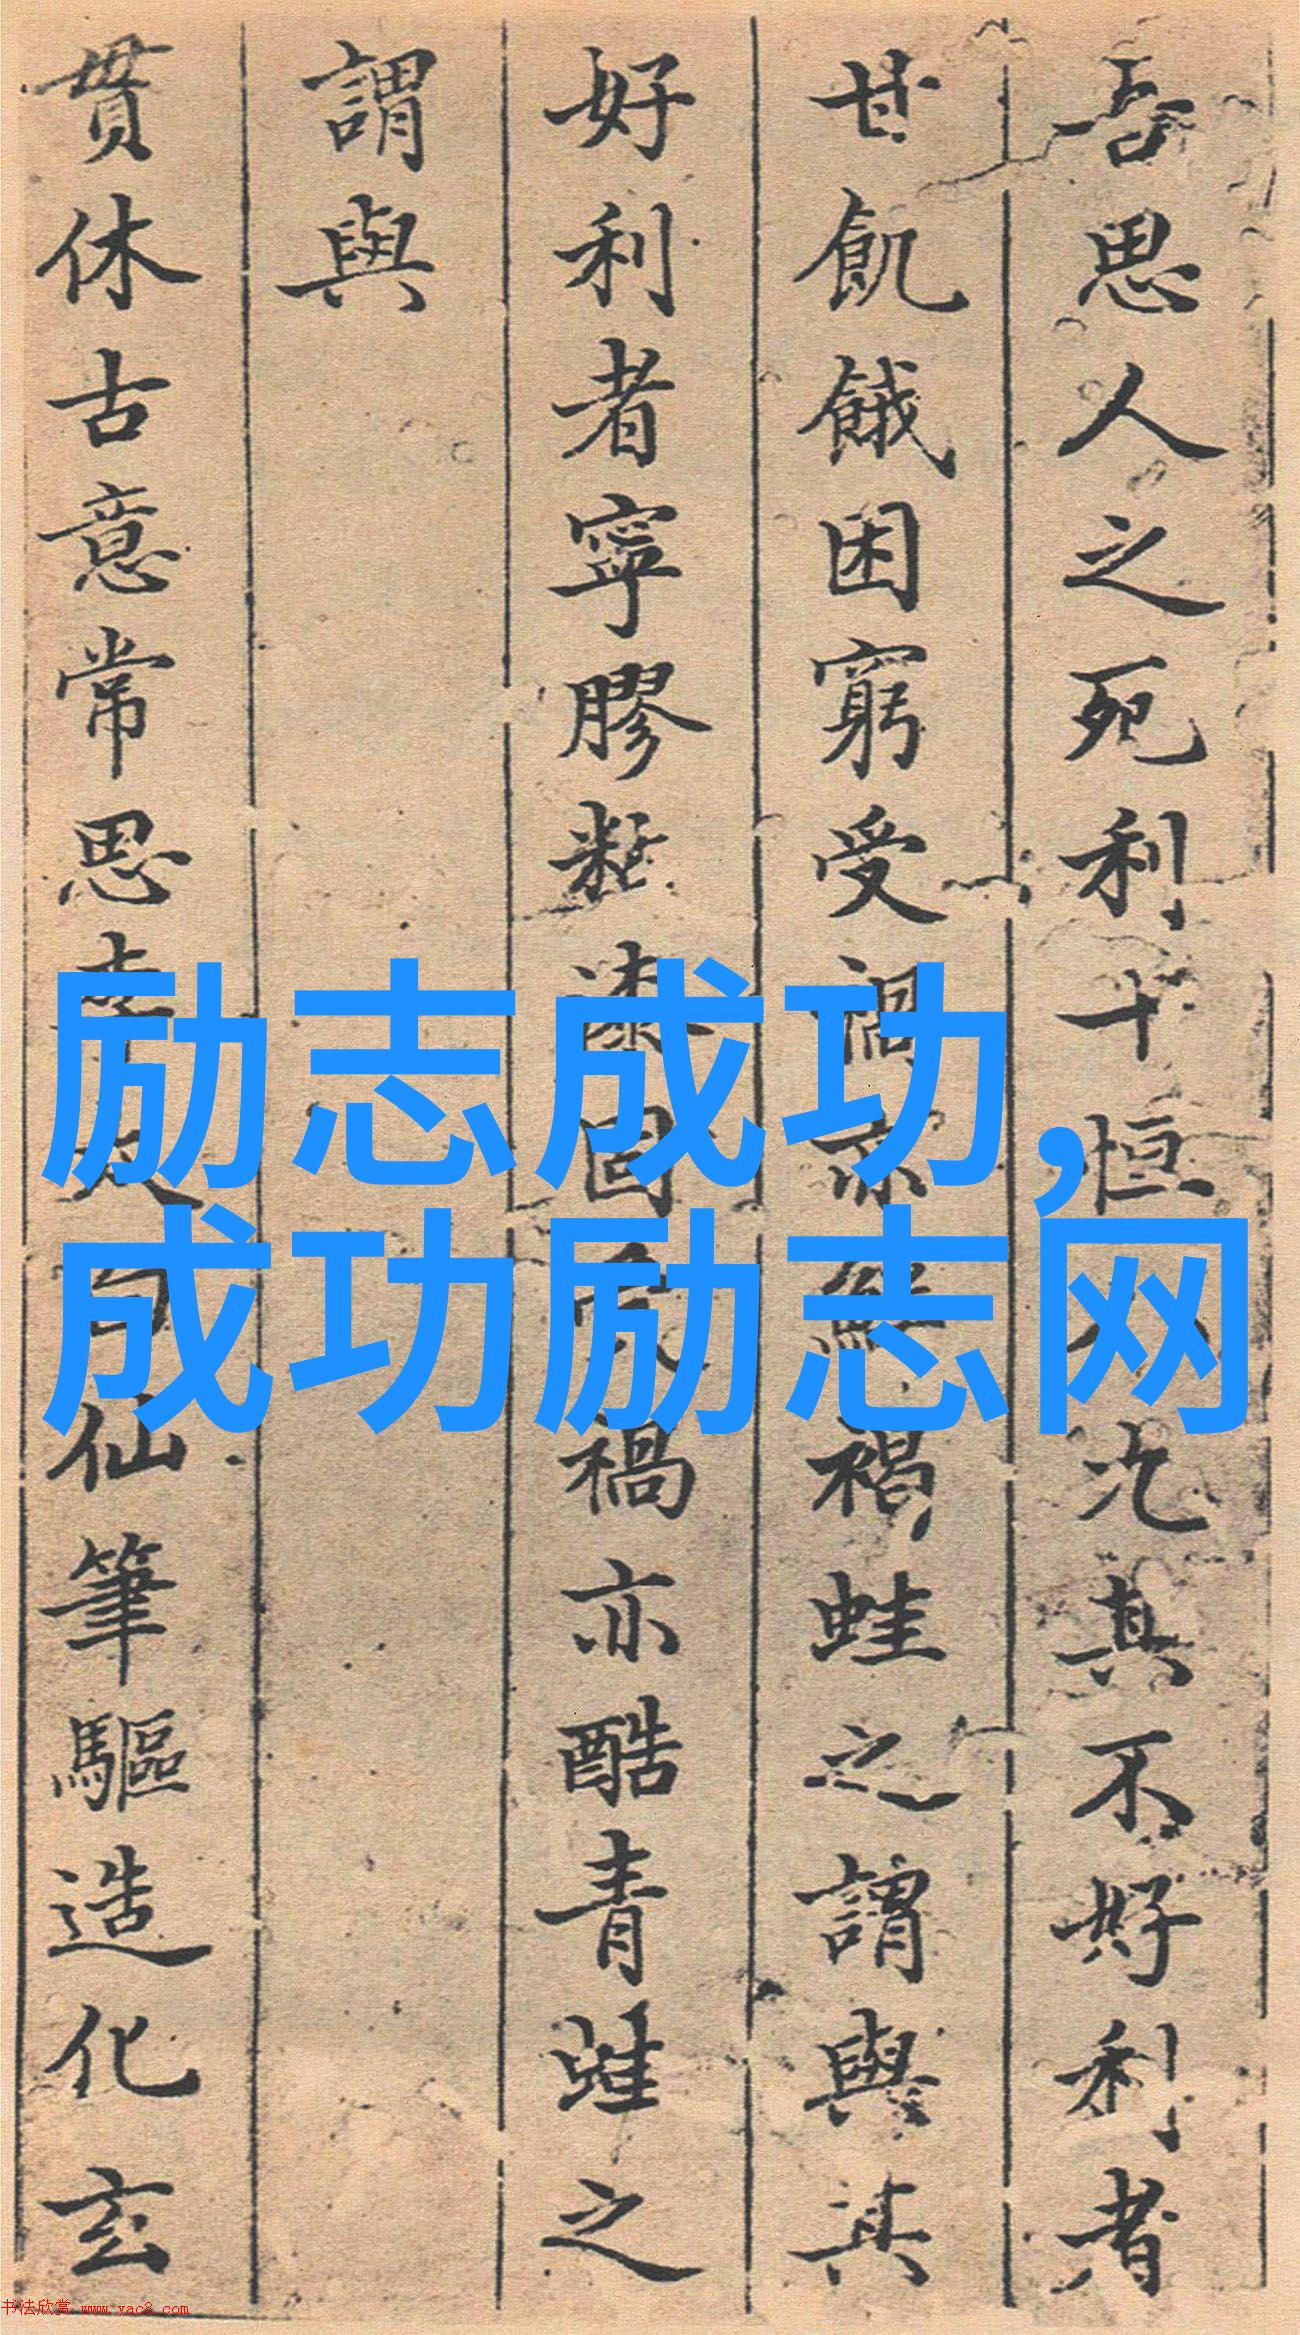 吾思人之死利十恒八九其不好利者
甘飢餓困窮受禍亦鮮禍蛙之謂與其
好利者寧膠黏漆固禍亦酷青蛙之
謂與
貫休古意常思李太白仙筆驅造化玄
励志成功,
成功励志网
书法欣赏 www.yac8.com